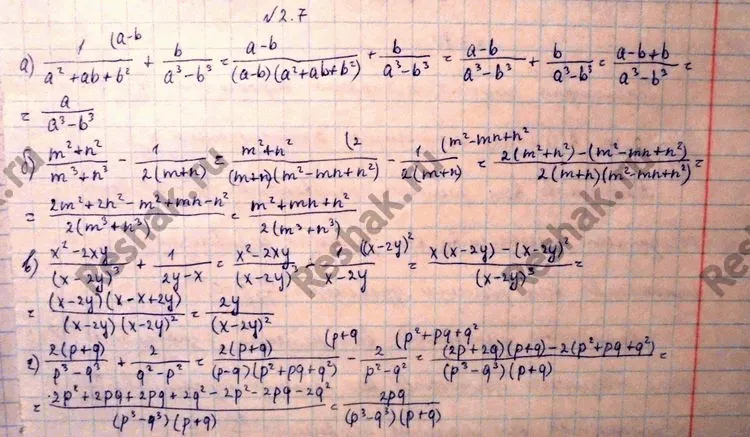 №2.7
а) 1 (a-b / a²+ab+b² + b / a³-b³ = a-b / (a-b)(a²+ab+b²) + b / a³-b³ = a-b / a³-b³ + b / a³-b³ = a-b+b / a³-b³ =
= a / a³-b³
б) m²+n² / m³+n³ - 1 / 2(m+n) = m²+n² (2 / (m+n)(m²-mn+n²) - 1 (m²-mn+n² / 2(m+n) = 2(m²+n²)-(m²-mn+n²) / 2(m+n)(m²-mn+n²) =
= 2m²+2n²-m²+mn-n² / 2(m³+n³) = m²+mn+n² / 2(m³+n³)
в) x²-2xy / (x-2y)³ + 1 / 2y-x = x²-2xy / (x-2y)³ - 1 (x-2y)² / x-2y = x(x-2y)-(x-2y)² / (x-2y)³ =
= (x-2y)(x-x+2y) / (x-2y)(x-2y)² = 2y / (x-2y)²
г) 2(p+q) / p³-q³ + 2 / q²-p² = 2(p+q) (p+q / (p-q)(p²+pq+q²) - 2 (p²+pq+q² / p²-q² = (2p+2q)(p+q)-2(p²+pq+q²) / (p³-q³)(p+q) =
= 2p²+2pq+2pq+2q²-2p²-2pq-2q² / (p³-q³)(p+q) = 2pq / (p³-q³)(p+q)
Reshak.ru
Reshak.ru
Reshak.ru